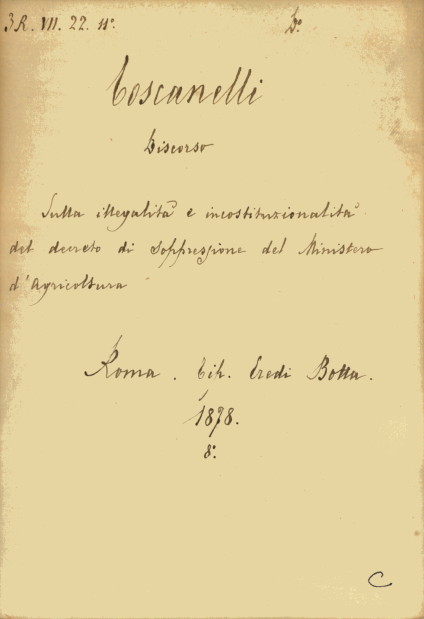 3R. VII. 22. 11°. D°.
Toscanelli
Discorso
Sulla illegalità e incostituzionalità
del decreto di soppressione del Ministero
d'Agricoltura
Roma. Tip. Eredi Botta.
1878.
8°.
C